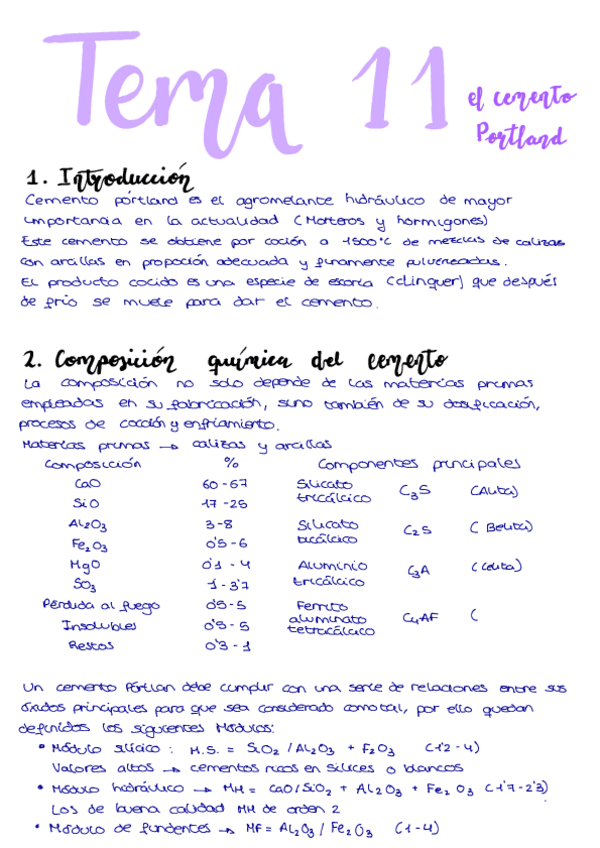 Tema 11
el cemento
Portland
1. Introducción
Cemento pórtland es el agromelante hidráulico de mayor
importancia en la actualidad (Morteros y hormigones)
Este cemento se obtiene por coción a 1500°C de mezclas de calizas
con arcillas en propoción adecuada y finamente pulvereadas.
EL producto cocido es una especie de escoria (cLinquer) que después
de frio se muele para dar el cemento.
2. Composición química del cemento
La composición no solo depende de las materias primas
empleadas en su fabricación, sino también de su dosificación,
procesos de cocción y enfriamiento.
Materias primas → calizas y arcillas
Composición % Componentes principales
CaO 60-67 Silicato tricálcico C3S (Alita)
SiO 17-25
Al2O3 3-8 Silicato bicálcico C2S (Belita)
Fe2O3 0'5-6
MgO 0'1-4 Aluminio tricálcico C3A (Celita)
SO3 1-3'7
Pérdida al fuego 0'5-5 Ferrito aluminato tetracálcico C4AF (
Insolubles 0'5-5
Restos 0'3-1
Un cemento Pórtlan debe cumplir con una serie de relaciones entre sus
óxidos principales para que sea considerado como tal, por ello quedan
definidos los siguientes Módulos:
• Módulo silícico: M.S. = SiO2/Al2O3 + F2O3 (1'2-4)
Valores altos → cementos ricos en sílices o blancos
• Módulo hidráulico → MH = CaO/SiO2 + Al2O3 + Fe2O3 (1'7-2'3)
Los de buena calidad MH de orden 2
• Módulo de fundentes → MF = Al2O3/Fe2O3 (1-4)